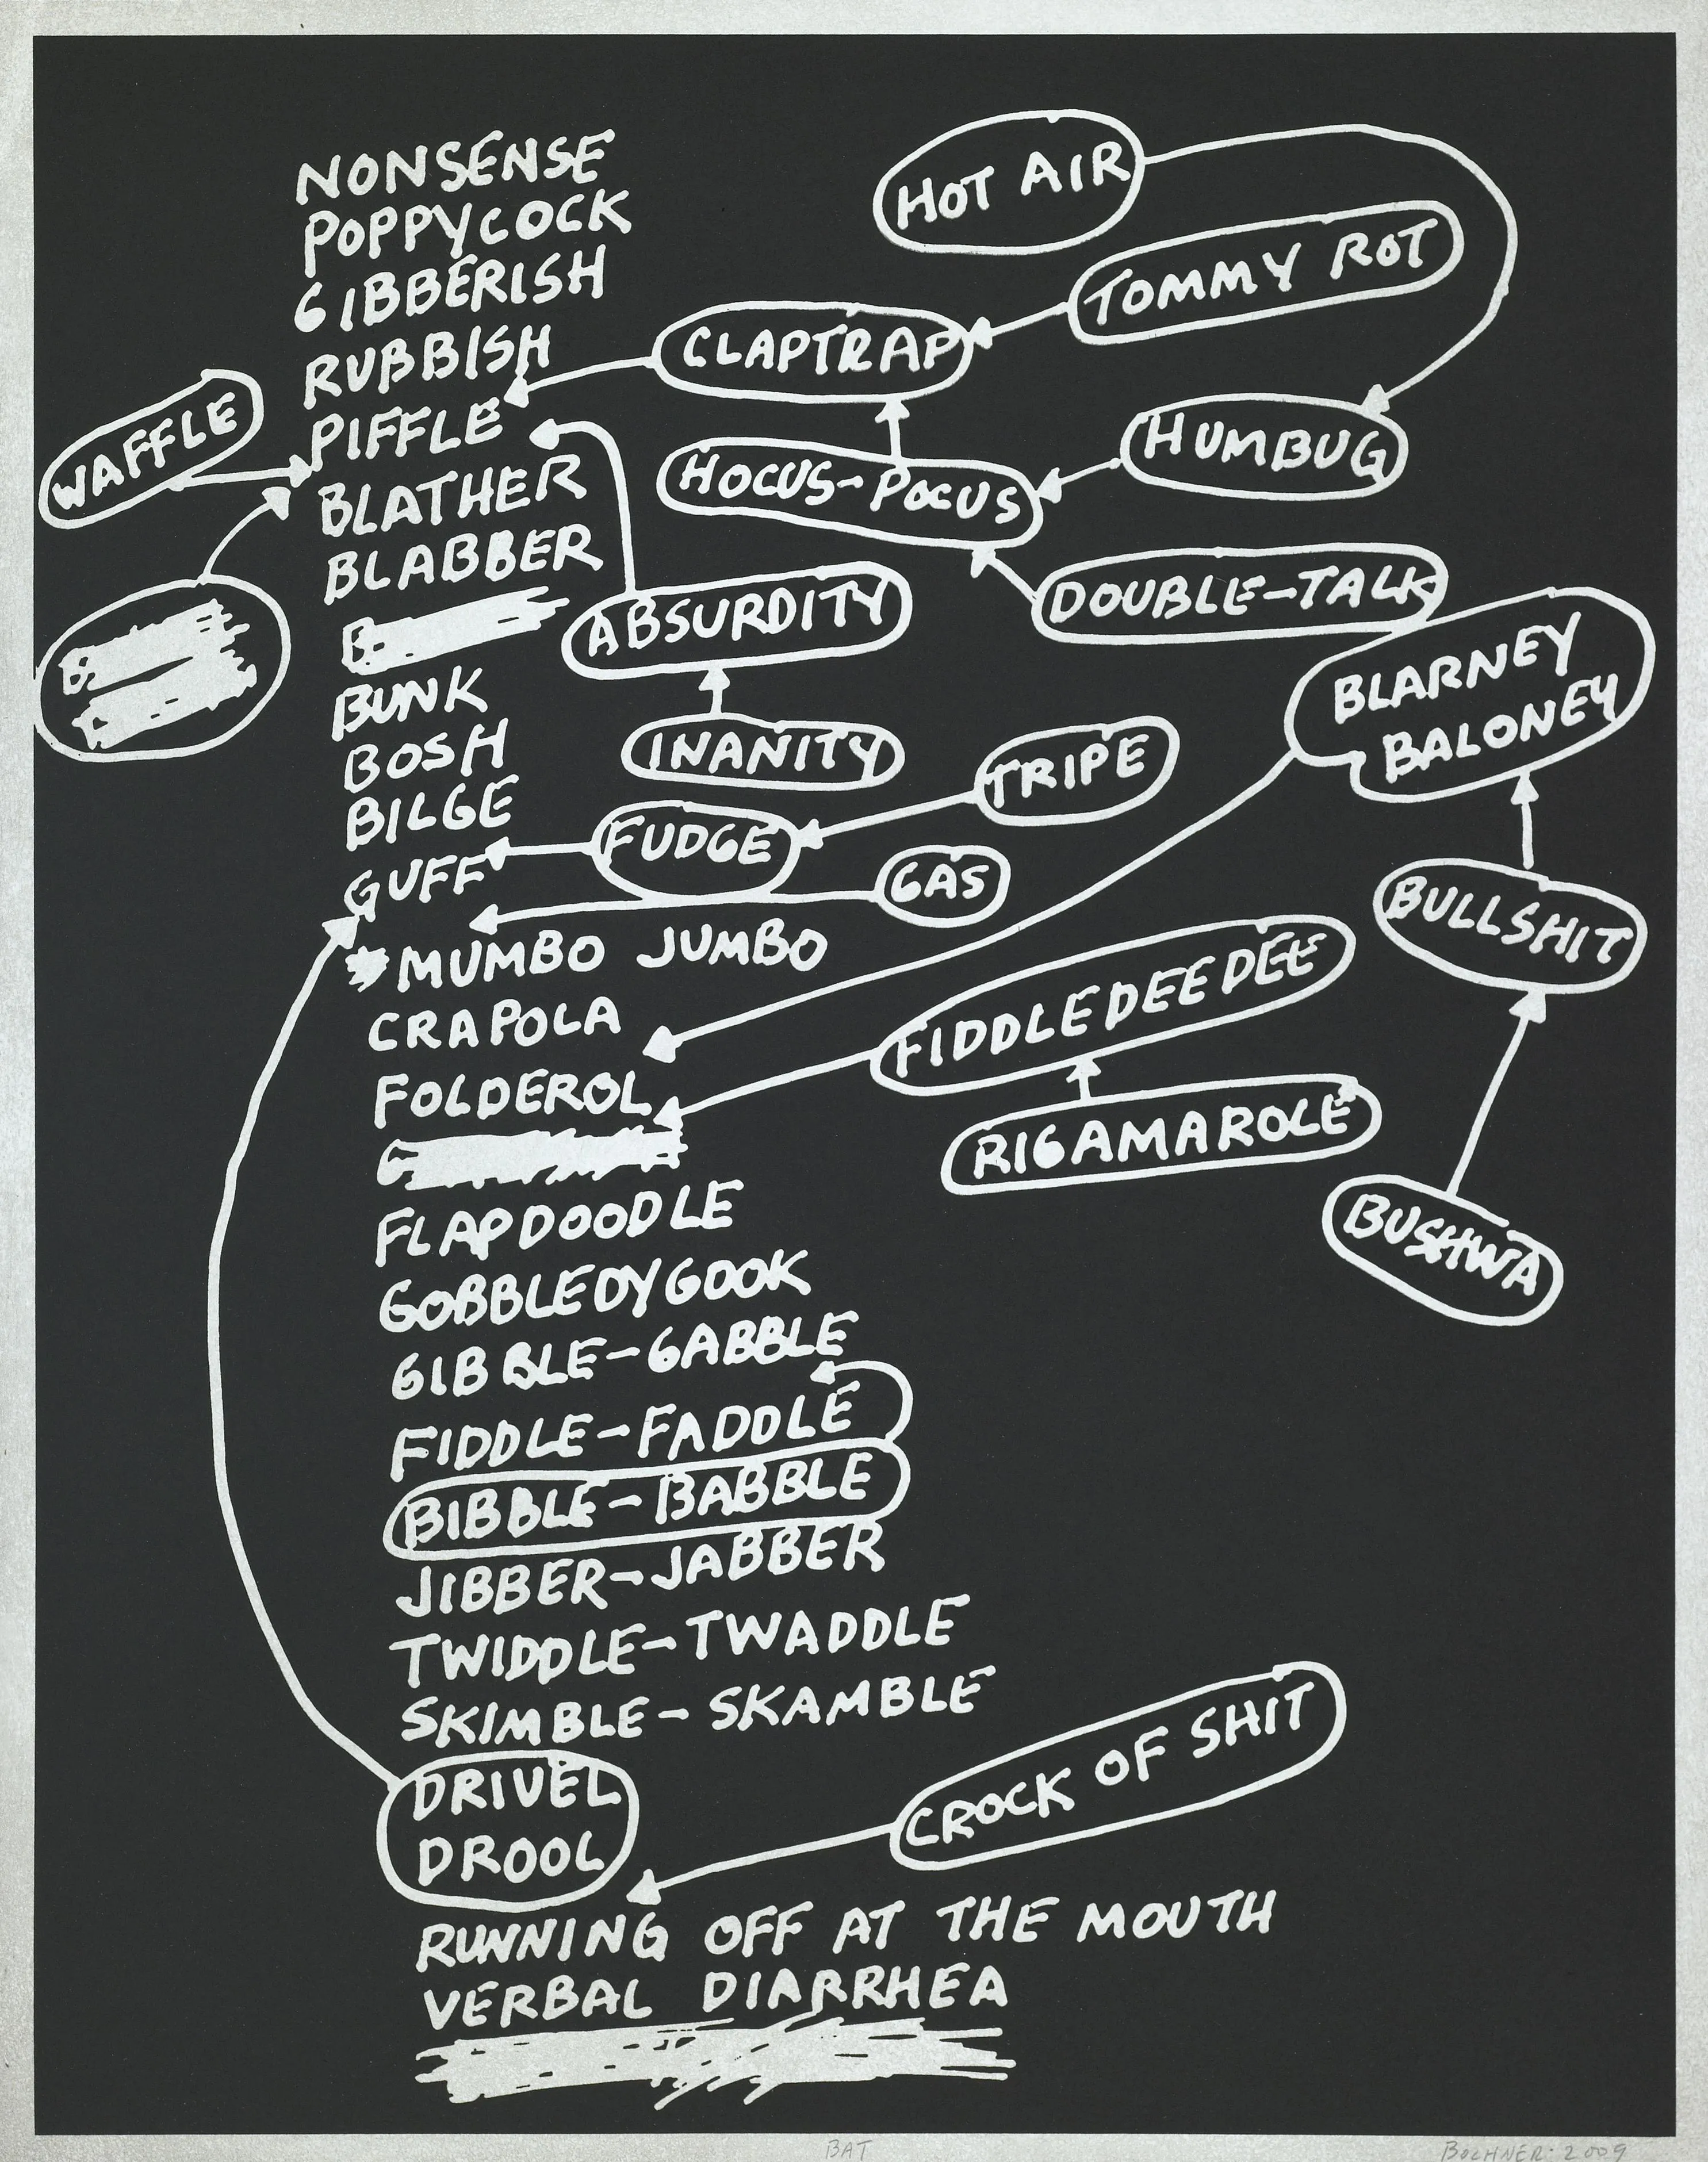 NONSENSE
POPPYCOCK
GIBBERISH
RUBBISH
PIFFLE
BLATHER
BLABBER
BUNK
BOSH
BILGE
GUFF
MUMBO JUMBO
CRAPOLA
FOLDEROL
FLAPDOODLE
GOBBLEDYGOOK
GIBBLE-GABBLE
FIDDLE-FADDLE
BIBBLE-BABBLE
JIBBER-JABBER
TWIDDLE-TWADDLE
SKIMBLE-SKAMBLE
DRIVEL
DROOL
RUNNING OFF AT THE MOUTH
VERBAL DIARRHEA
WAFFLE
HOT AIR
TOMMY ROT
CLAPTRAP
HUMBUG
HOCUS-POCUS
DOUBLE-TALK
ABSURDITY
INANITY
BLARNEY
BALONEY
TRIPE
FUDGE
GAS
BULLSHIT
FIDDLEDEEDEE
RIGAMAROLE
BUSHWA
CROCK OF SHIT
BAT
BOCHNER · 2009